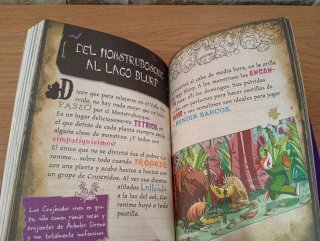 DEL MONSTRUOBOSQUE
AL LAGO BLURP
Dicen que para relajarse en el Valle
rido, no hay nada mejor que un buen
PASEO por el Monstruobosque.
Es un lugar deliciosamente TÉTRICO,
el que detrás de cada planta siempre
alguna clase de monstruo. ¡Y todos son
simpatiquísimos!
El único que no se divirtió fue el pobre Ge-
ronimo... sobre todo cuando TROPEZÓ
con una planta y acabó hocico a hocico con
un grupo de Crujénidos. Al ver sus dientes
afilados brillando
a la luz del sol, Ge-
ronimo huyó a toda
pastilla.
Los Crujénidos viven en gru-
po, sólo comen ramas secas y
crujientes de Árboles Sirena
y son totalmente inofensivos.
al cabo de media hora, en la orilla
Blurp. A los monstruos les ENCAN-
los domingos. Sus pútridas
son perfectas para hacer castillos de
y sus remolinos son ideales para jugar
HUNDIR BARCOS.